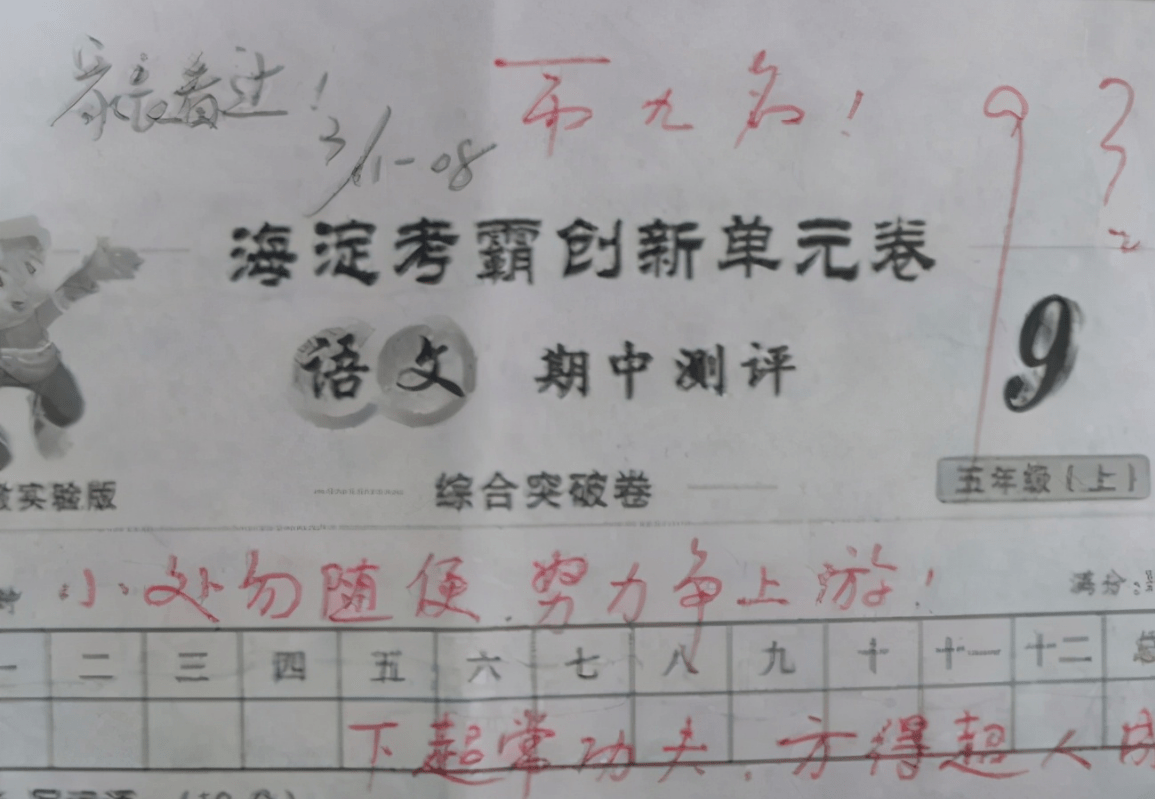 家长看过！
3/11-08
第九名！
93
海淀考霸创新单元卷
语文 期中测评 9
实验版 综合突破卷 五年级(上)
小处勿随便，努力争上游！
满分：
一 二 三 四 五 六 七 八 九 十 十一 十二 总
下超常功夫，方得超人成